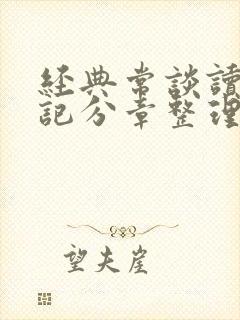 經典常談讀
記分章整理
望夫崖